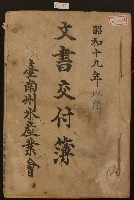 昭和十九年以降
文書交付簿
臺南州水產業會